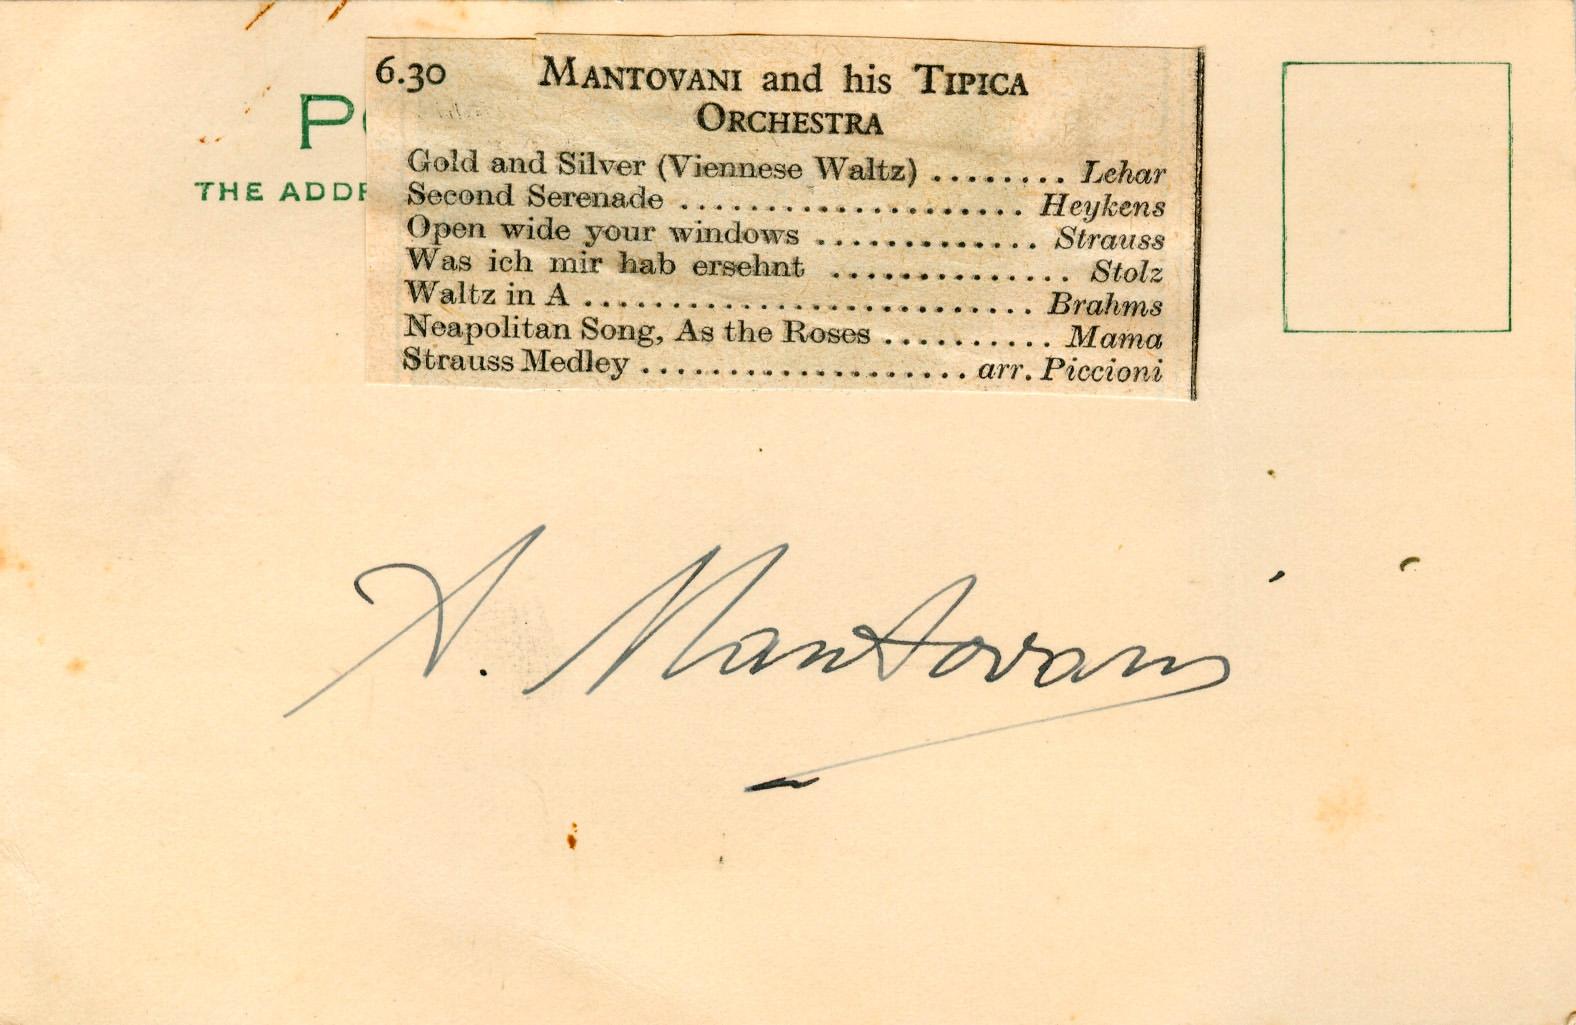 PO
THE ADDR
6.30 MANTOVANI and his TIPICA
ORCHESTRA
Gold and Silver (Viennese Waltz) ........ Lehar
Second Serenade .................... Heykens
Open wide your windows ............. Strauss
Was ich mir hab ersehnt .............. Stolz
Waltz in A ........................... Brahms
Neapolitan Song, As the Roses .......... Mama
Strauss Medley ................... arr. Piccioni
A. Mantovani